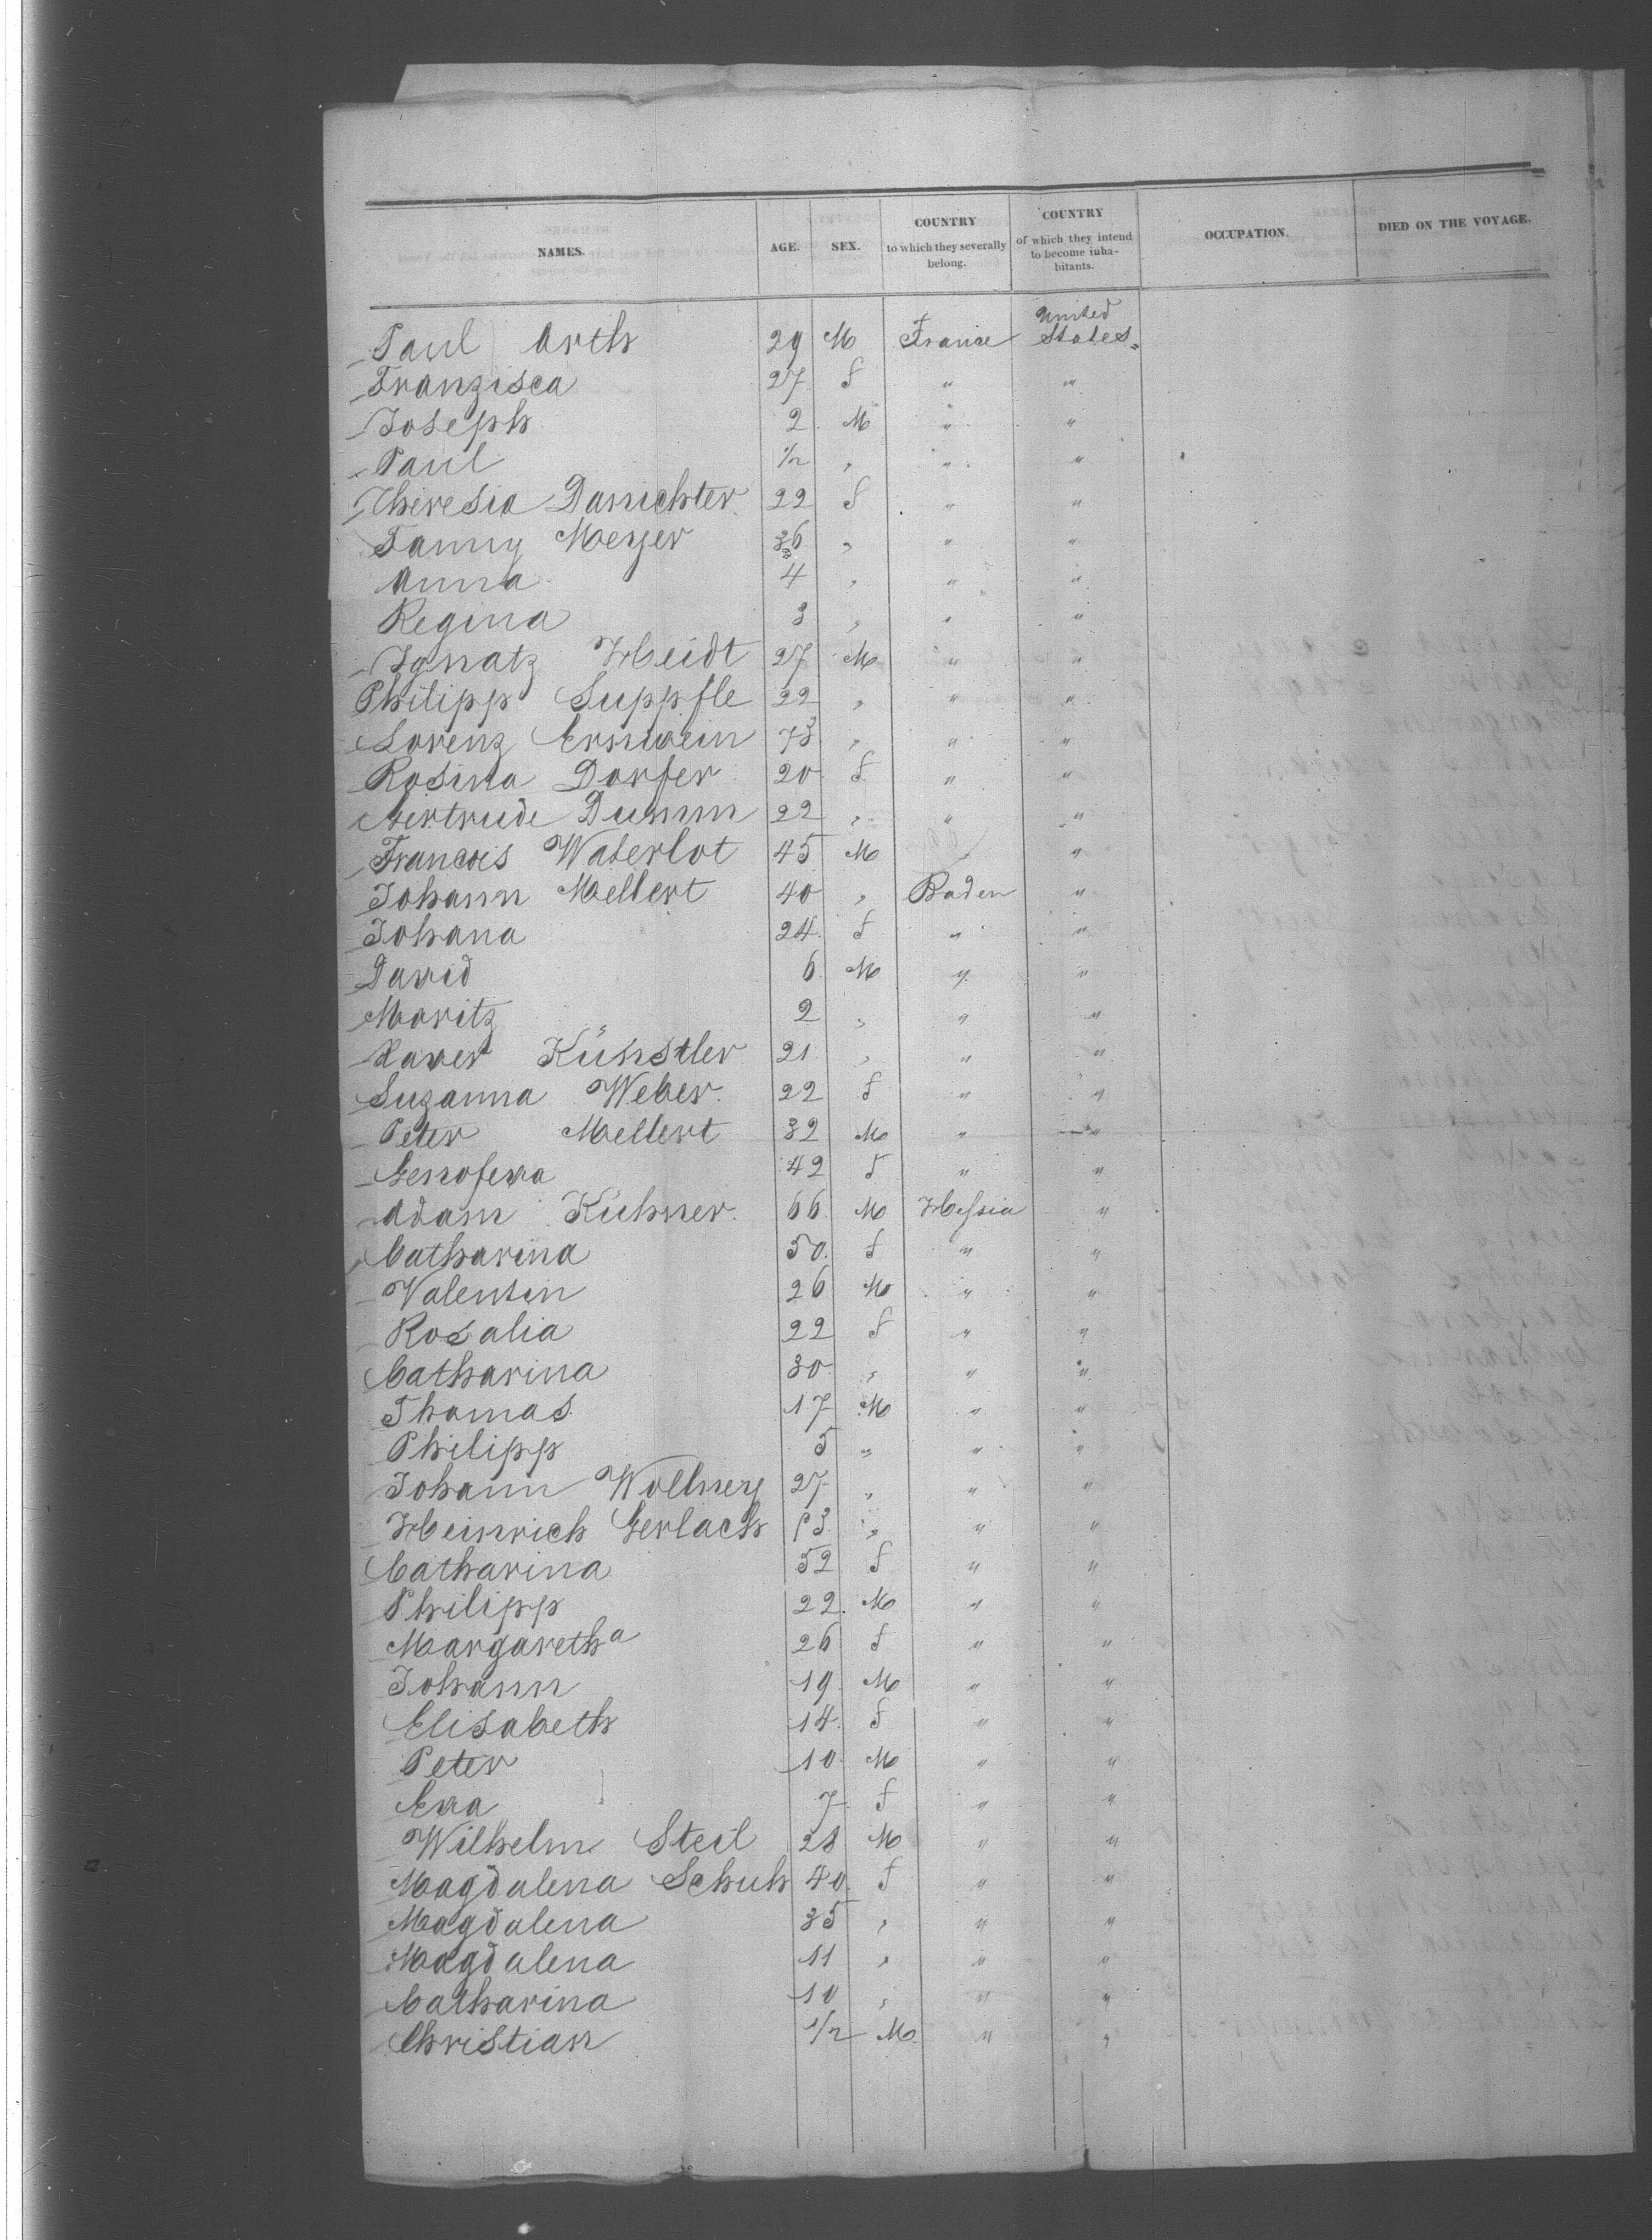 NAMES. AGE. SEX. COUNTRY to which they severally belong. COUNTRY of which they intend to become inhabitants. OCCUPATION. DIED ON THE VOYAGE.
Paul Arth 29 M France United States.
Franzisca 27 f " "
Joseph 2 M " "
Paul 1/2 " " "
Theresia Danichter 22 f " "
Fanny Meyer 36 " " "
Anna 4 " " "
Regina 3 " " "
Ignatz Heidt 27 M " "
Philipp Suppfle 22 " " "
Lorenz Ernwein 73 " " "
Rosina Dorfer 20 f " "
Gertrude Dumm 22 " " "
Francois Waterlot 45 M "
Johann Mellert 40 " Baden "
Johana 24 f " "
David 6 M " "
Moritz 2 " " "
Xaver Künstler 21 " " "
Suzanna Weber 22 f " "
Peter Mellert 32 M " "
Genofeva 42 f " "
Adam Kühner 66 M Hessia "
Catharina 50 f " "
Valentin 26 M " "
Rosalia 22 f " "
Catharina 30 " " "
Thomas 17 M " "
Philipp 5 " " "
Johann Wollney 27 " " "
Heinrich Gerlach 53 " " "
Catharina 52 f " "
Philipp 22 M " "
Margaretha 26 f " "
Johann 19 M " "
Elisabeth 14 f " "
Peter 10 M " "
Eva 7 f " "
Wilhelm Steil 28 M " "
Magdalena Schuh 40 f " "
Magdalena 35 " " "
Magdalena 11 " " "
Catharina 10 " " "
Christian 1/2 M " "